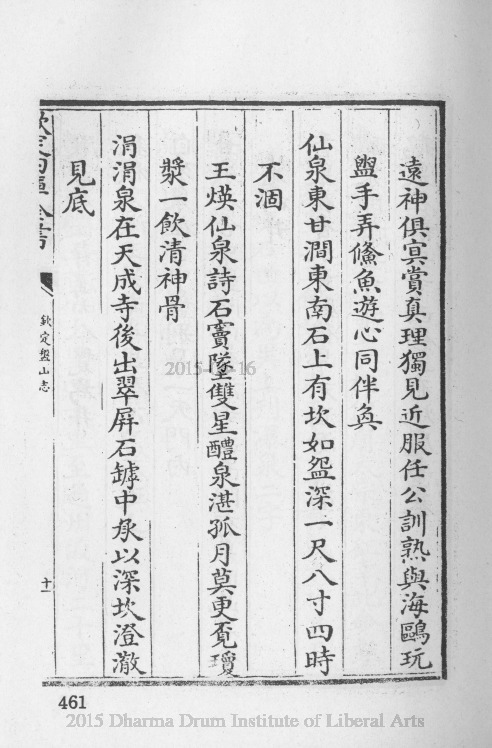 遠神俱寅賞真理獨見近服任公訓熟與海鷗玩
盥手弄鯈魚遊心同伴奐
仙泉東甘澗東南石上有坎如盌深一尺八寸四時
不涸
王煐仙泉詩石竇墜雙星醴泉湛孤月莫更覓瓊
漿一飲清神骨
涓涓泉在天成寺後出翠屏石罅中承以深坎澄澈
見底
欽定四庫全書
欽定盤山志
十一
461
2015 Dharma Drum Institute of Liberal Arts